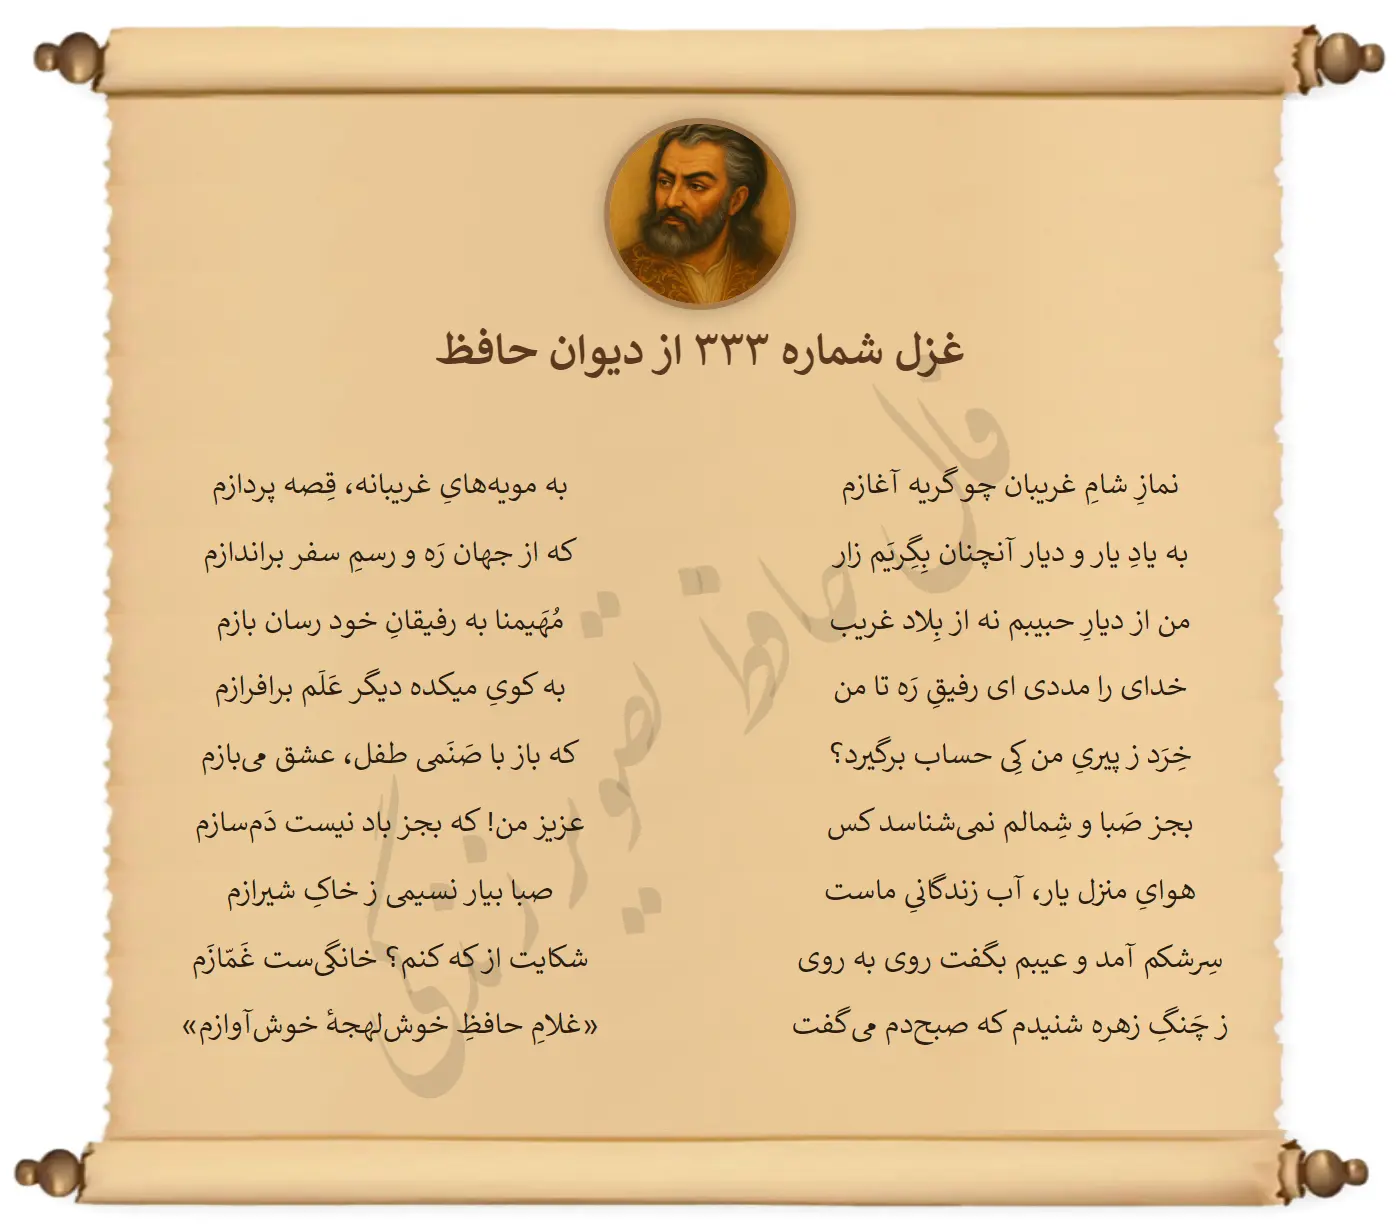 غزل شماره ۳۳۳ از دیوان حافظ
نمازِ شامِ غریبان چو گریه آغازم
به مویه‌هایِ غریبانه، قِصه پردازم
به یادِ یار و دیار آنچنان بِگِریَم زار
که از جهان رَه و رسمِ سفر براندازم
من از دیارِ حبیبم نه از بِلاد غریب
مُهَیمنا به رفیقانِ خود رسان بازم
خدای را مددی ای رفیقِ رَه تا من
به کویِ میکده دیگر عَلَم برافرازم
خِرَد ز پیریِ من کِی حساب برگیرد؟
که باز با صَنَمی طفل، عشق می‌بازم
بجز صَبا و شِمالم نمی‌شناسد کس
عزیز من! که بجز باد نیست دَم‌سازم
هوایِ منزل یار، آب زندگانیِ ماست
صبا بیار نسیمی ز خاکِ شیرازم
سِرشکم آمد و عیبم بگفت روی به روی
شکایت از که کنم؟ خانگی‌ست غَمّازَم
ز چَنگِ زهره شنیدم که صبح‌دم می‌گفت
«غلامِ حافظِ خوش‌لهجهٔ خوش‌آوازم»
فال حافظ تصویر زندگی